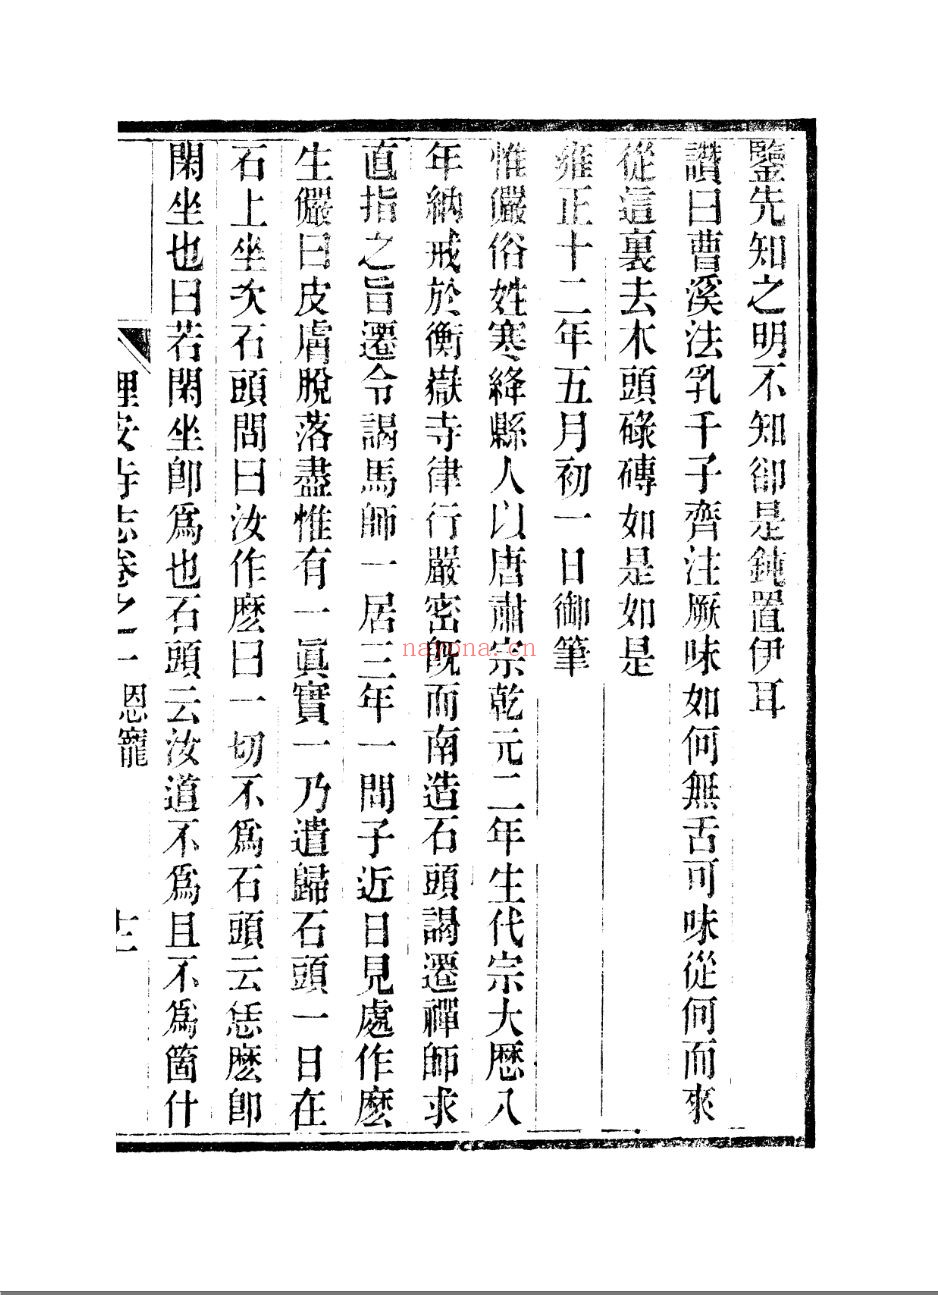 鑒先知之明不知卻是鈍置伊耳
讚曰曹溪法乳千子齊注厥味如何無舌可味從何而來
從這裏去木頭碌磚如是如是
雍正十二年五月初一日御筆
惟儼俗姓寒絳縣人以唐肅宗乾元二年生代宗大曆八
年納戒於衡嶽寺律行嚴密既而南造石頭謁遷禪師求
直指之旨遷令謁馬師一居三年一問子近日見處作麽
生儼曰皮膚脫落盡惟有一眞實一乃遣歸石頭一日在
石上坐次石頭問曰汝作麽曰一切不爲石頭云恁麽卽
閑坐也曰若閑坐卽爲也石頭云汝道不爲且不爲箇什
理安寺志卷之一 恩寵 十二
nanona.cn